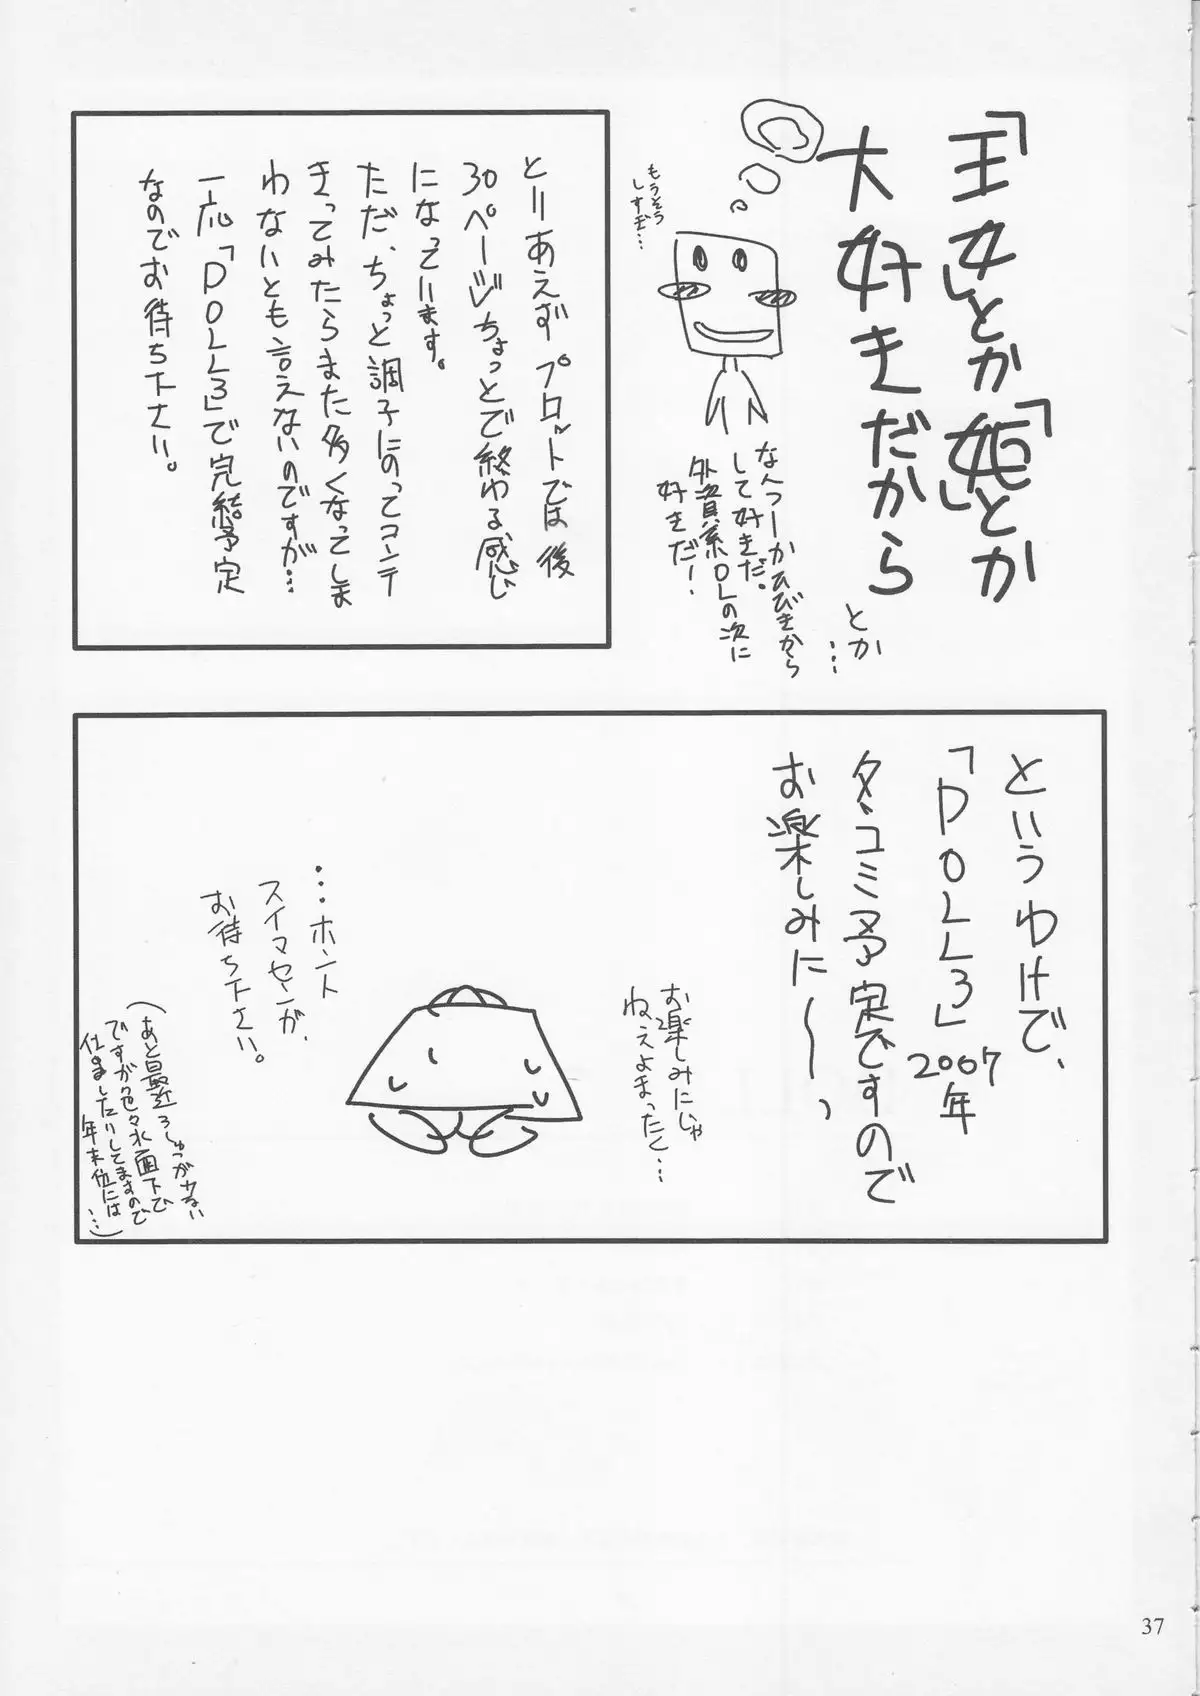 「王女」とか「姫」とか
大好きだから
とか
…
なんつーかひびきから
して好きだ。
外資系OLの次に
好きだ!
もうそう
しすぎ…
とりあえずプロットでは後
30ページちょっとで終わる感じ
になっています。
ただ、ちょっと調子にのってコンテ
きってみたらまた多くなってしま
わないとも言えないのですが…
一応「DOLL3」で完結予定
なのでお待ち下さい。
というわけで、
「DOLL3」2007年
夏コミ予定ですので
お楽しみに〜〜っ
お楽しみにじゃ
ねえよまったく…
…ホント
スイマセンが、
お待ち下さい。
(あと最近ろしゅつが少ない
ですが色々水面下で
仕込ましたりしてますので
年末位には…)
37